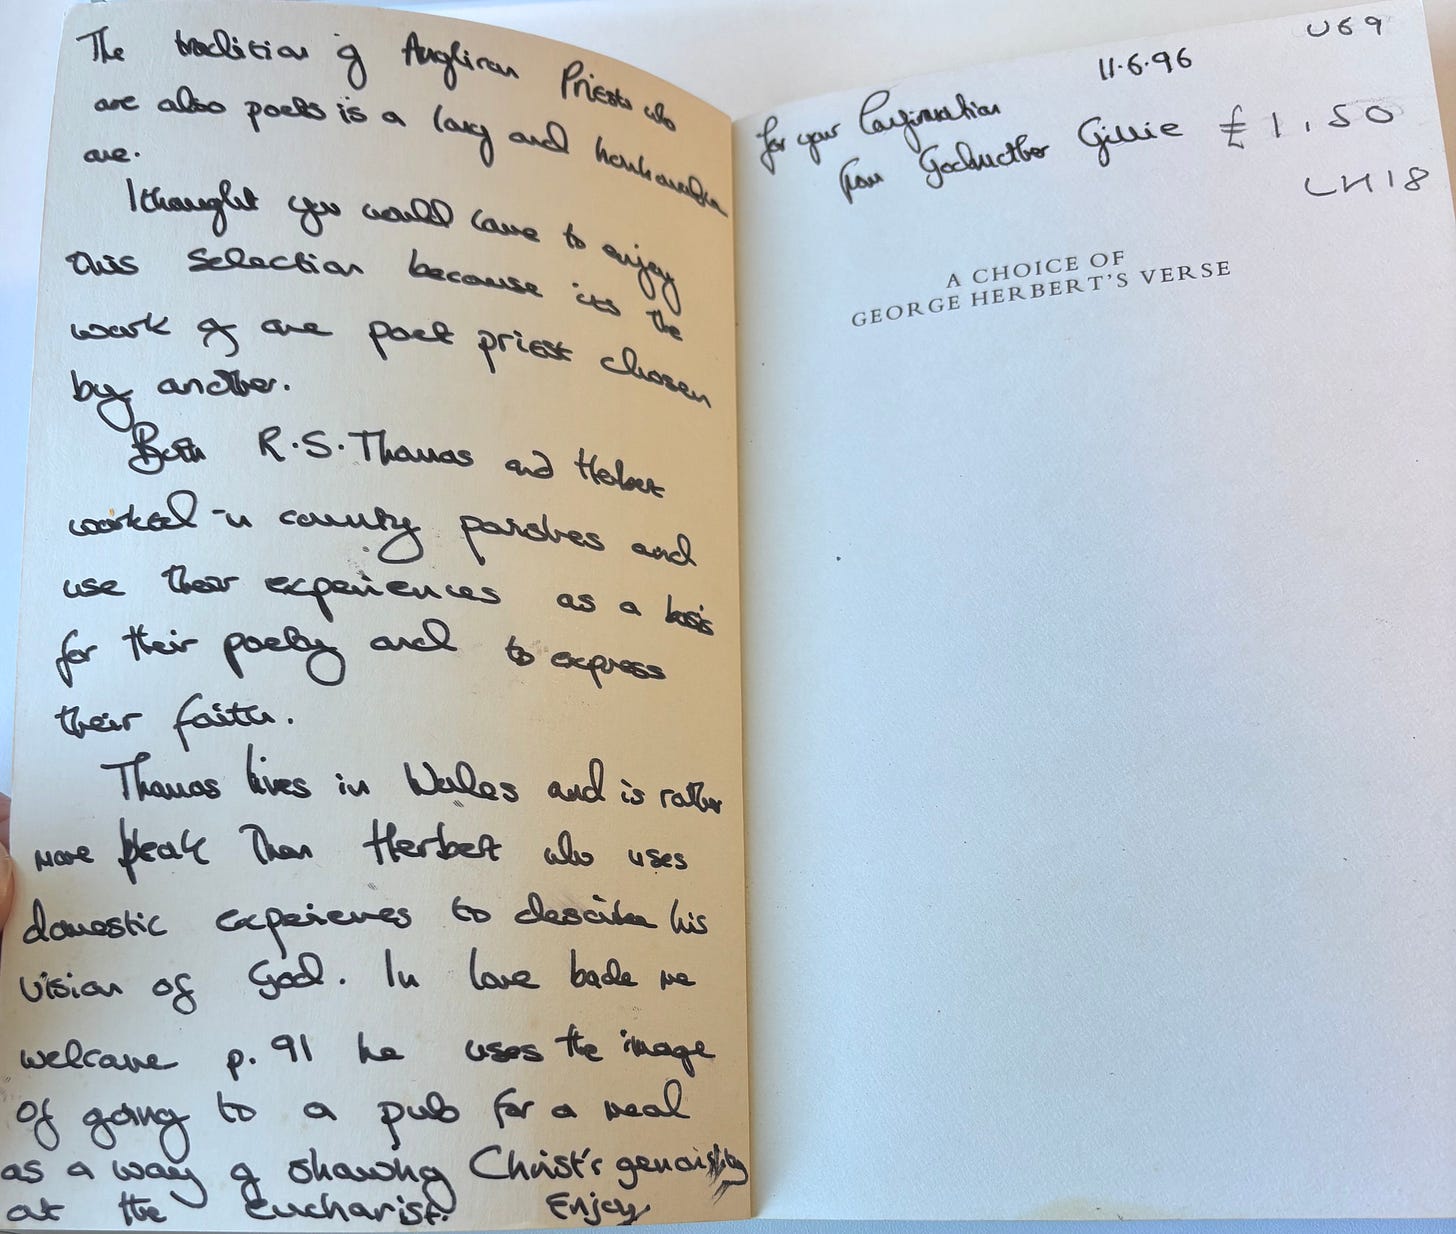 The tradition of Anglican Priests who
are also poets is a long and honourable
one.
I thought you would come to enjoy
this selection because its the
work of one poet priest chosen
by another.
Both R.S. Thomas and Herbert
worked in country parishes and
use their experiences as a basis
for their poetry and to express
their faith.
Thomas lives in Wales and is rather
more bleak than Herbert who uses
domestic experiences to describe his
vision of God. In love bade me
welcome p. 91 he uses the image
of going to a pub for a meal
as a way of showing Christ's generosity
at the eucharist. Enjoy
U69
11.6.96
for your Confirmation
from Godmother Gillie £1.50
LH18
A CHOICE OF
GEORGE HERBERT'S VERSE